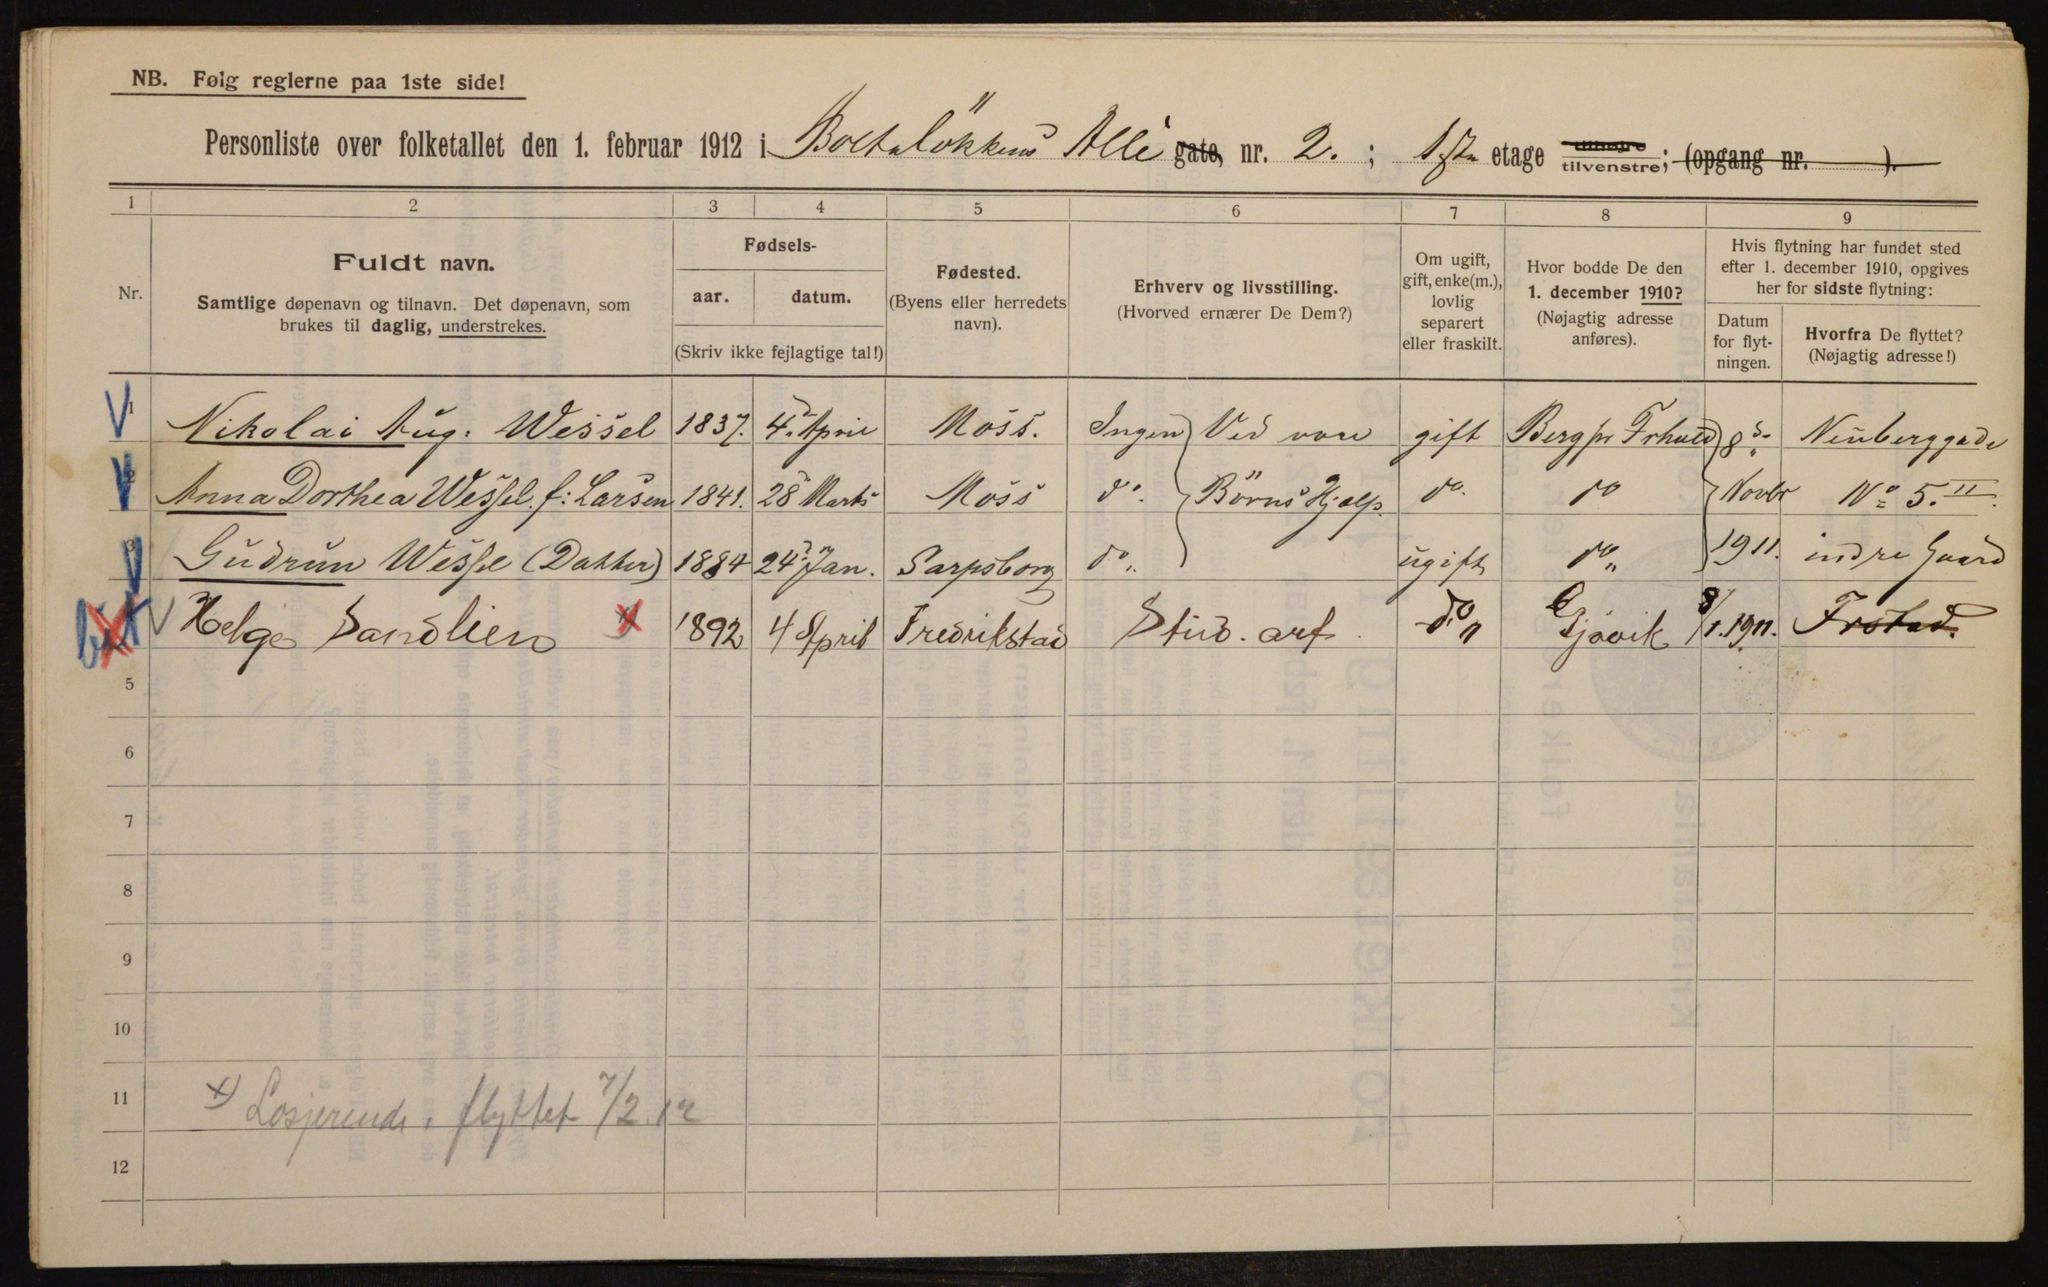 NB. Følg reglerne paa 1ste side!
Personliste over folketallet den 1. februar 1912 i Boltelökkens Allè gate, nr. 2. ; 1ste etage tilhøjre tilvenstre; (opgang nr. ).
1 2 3 4 5 6 7 8 9
Nr.
Fuldt navn.
Samtlige døpenavn og tilnavn. Det døpenavn, som
brukes til daglig, understrekes.
Fødsels-
aar. datum.
(Skriv ikke fejlagtige tal!)
Fødested.
(Byens eller herredets
navn).
Erhverv og livsstilling.
(Hvorved ernærer De Dem?)
Om ugift,
gift, enke(m.),
lovlig
separert
eller fraskilt.
Hvor bodde De den
1. december 1910?
(Nøjagtig adresse
anføres).
Hvis flytning har fundet sted
efter 1. december 1910, opgives
her for sidste flytning:
Datum
for flyt-
ningen.
Hvorfra De flyttet?
(Nøjagtig adresse!)
1 Nikolai Aug. Wessel 1837. 4. April Moss. Ingen Ved vore gift Berg pr Frhald 8de Neuberggade
2 Anna Dorthea Wessel f: Larsen 1841. 28 Marts Moss do. Börns Hjelp. do. do Novbr No 5. II
3 Gudrun Wessel (Datter) 1884 24 Jan. Sarpsborg do „ ugift do „ 1911. indre Gaard
Helge Sandlien x) 1892 4 April Fredrikstad Stud. art. do „ Gjøvik 8/1. 1911. Frstad.
5
6
7
8
9
10
11
x) Losjerende, flyttet 7/2 12
12